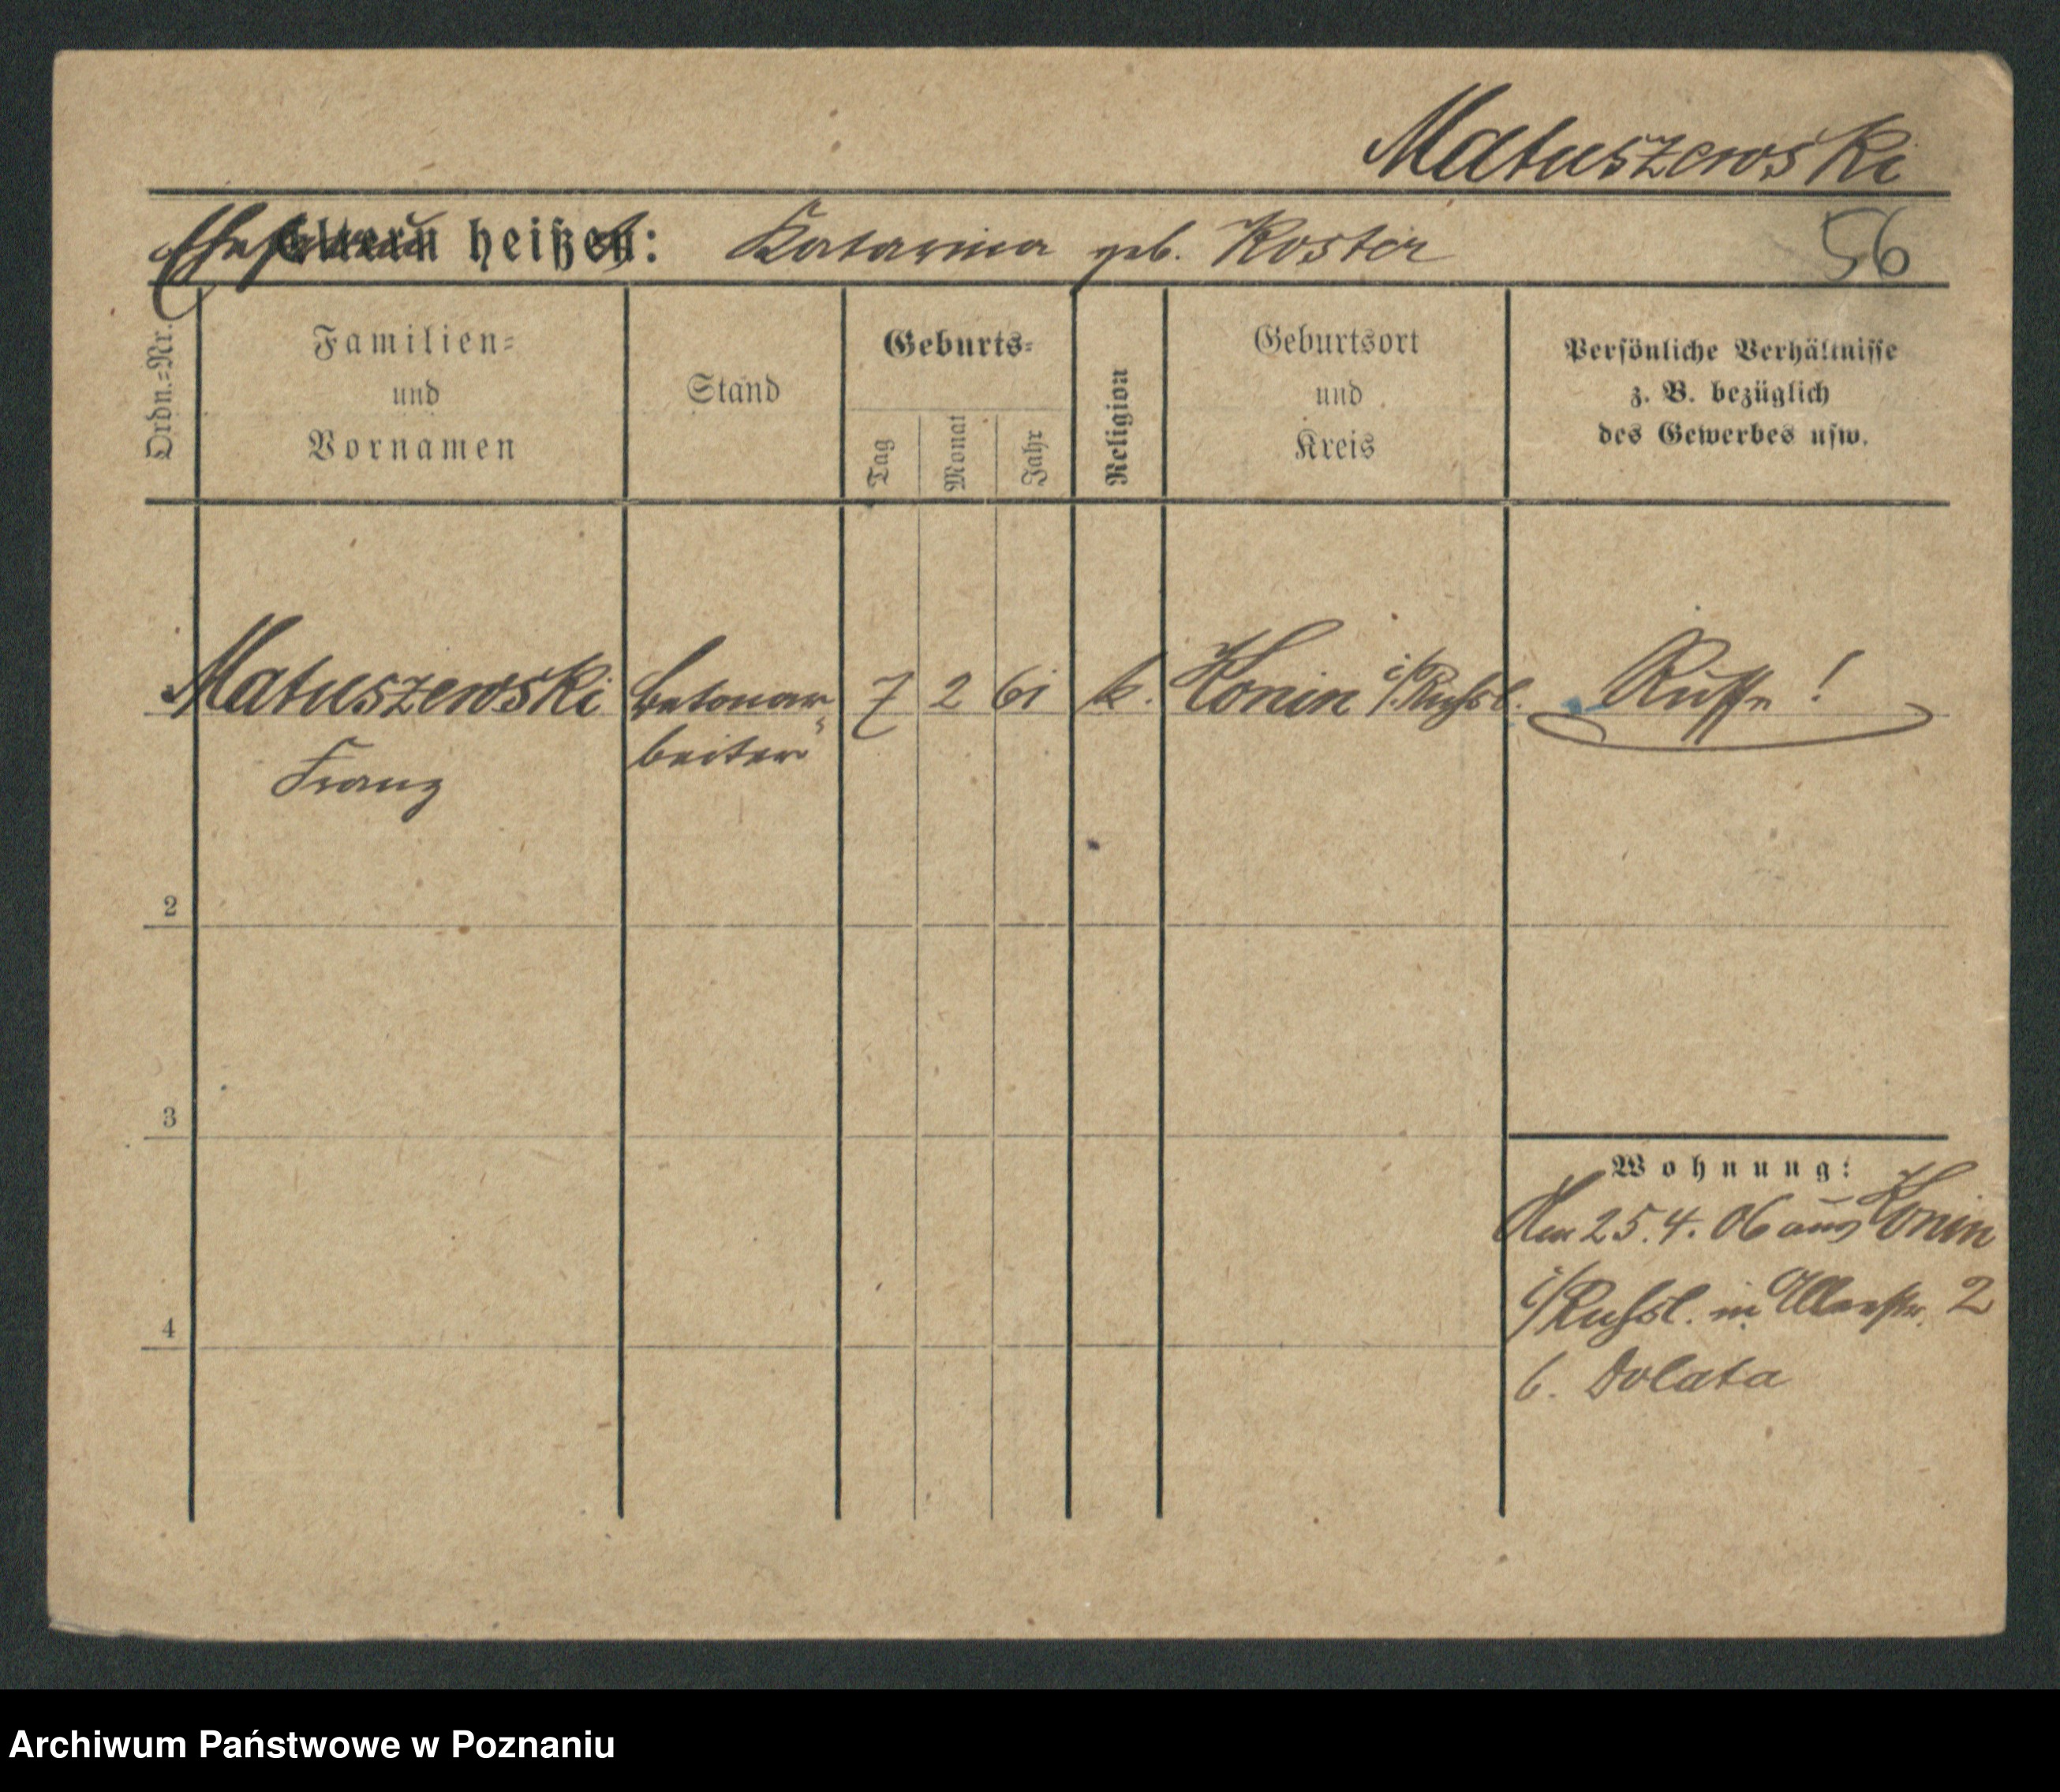 Matuszewski
Ehefrau Eltern heißen: Katarina geb. Koster
56
Ordn.=Nr.
Familien=
und
Vornamen
Stand
Geburts=
Tag
Monat
Jahr
Religion
Geburtsort
und
Kreis
Persönliche Verhältnisse
z. B. bezüglich
des Gewerbes usw.
Matuszewski Betonar 7 2 61 k. Konin i/Russl. Russe!
Franz beiter
2
3
Wohnung:
25.4.06 aus Konin
i/Russl. in 2
4
b. Dolata
Archiwum Państwowe w Poznaniu